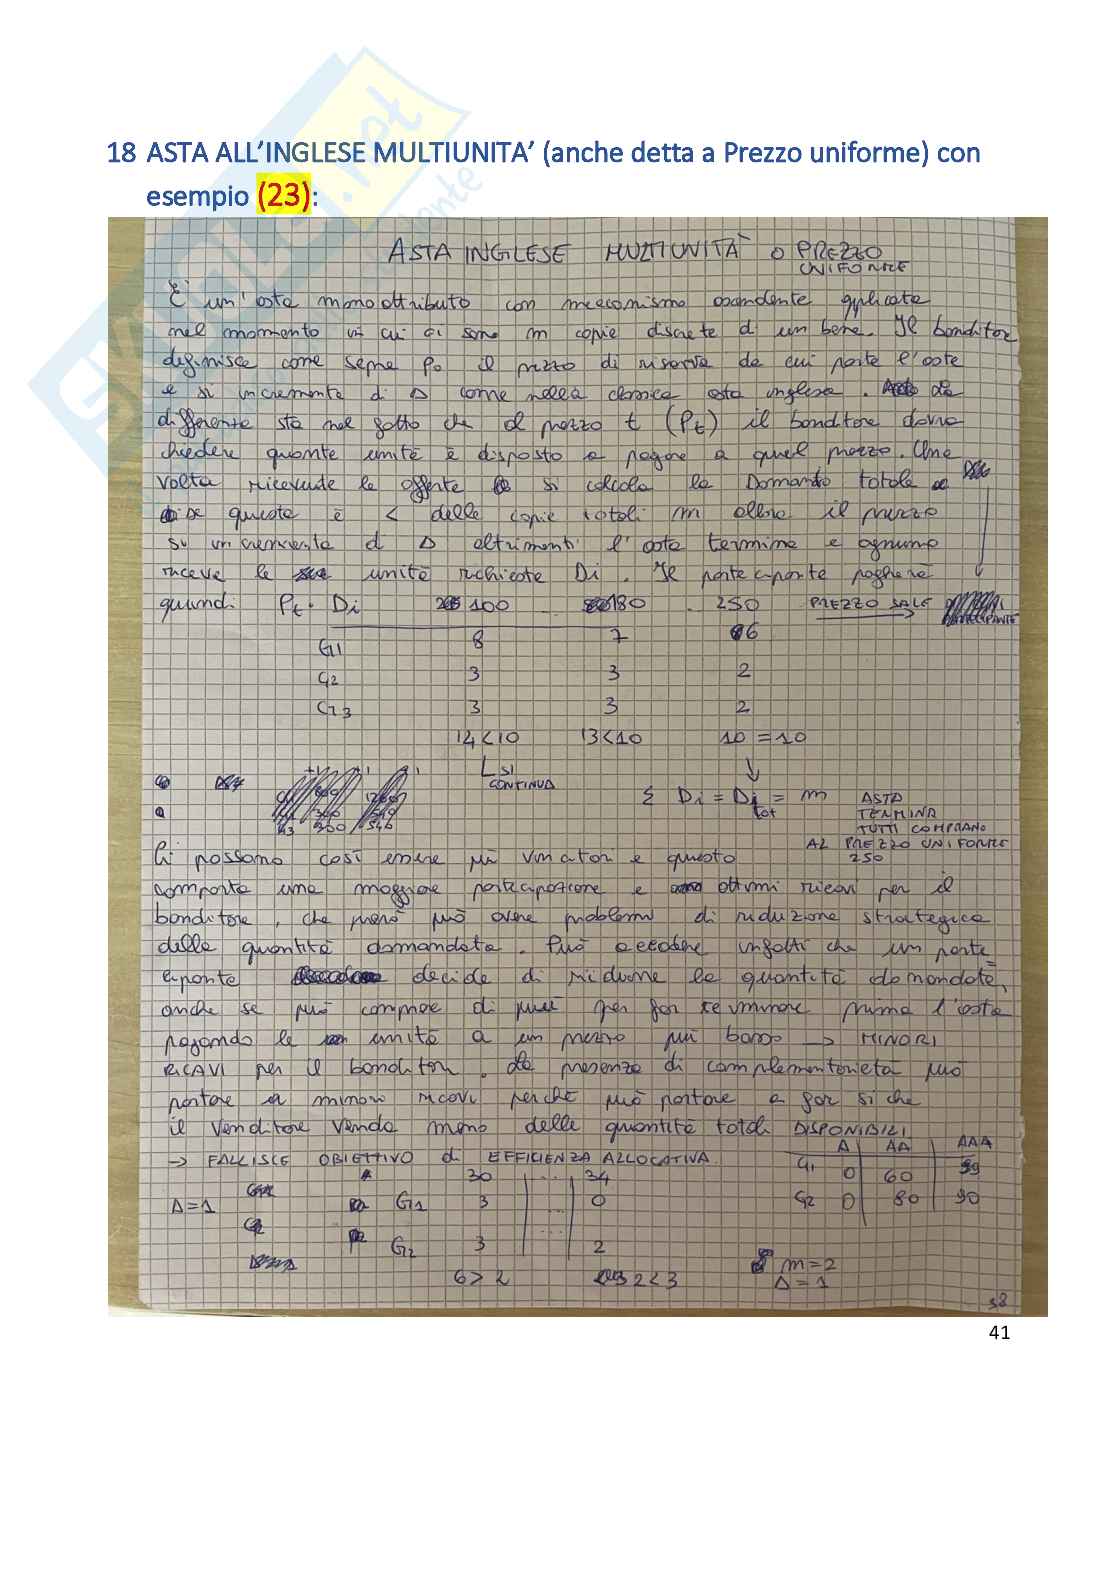 18 ASTA ALL'INGLESE MULTIUNITA' (anche detta a Prezzo uniforme) con
esempio (23):
ASTA INGLESE MULTIUNITÀ o PREZZO
UNIFORME
È un'asta monoattributo con meccanismo ascendente applicata
nel momento in cui ci sono m copie discrete di un bene. Il banditor
definisce come sempre P0 il prezzo di riserva da cui parte l'asta
e si incrementa di Δ come nella classica asta inglese. La
differenza sta nel fatto che al prezzo t (Pt) il banditore dovrà
chiedere quante unità è disposto a pagare a quel prezzo. Una
volta ricevute le offerte si calcola la Domanda totale
se questa è < delle copie totali m allora il prezzo
si incrementa di Δ altrimenti l'asta termina e ognuno
riceve le unità richieste Di. Il partecipante pagherà
quindi Pt · Di 100 .. 180 . 250 PREZZO SALE
G1 8 7 6
G2 3 3 2
G3 3 3 2
14<10 13<10 10=10
SI
CONTINUA
Σ Di = Di tot = m ASTA
TERMINA
TUTTI COMPRANO
AL PREZZO UNIFORME
250
Ci possono così essere più vincitori e questo
comporta una maggiore partecipazione e ottimi ricavi per il
banditore, che però può avere problemi di riduzione strategica
della quantità domandata. Può accadere infatti che un parte=
cipante decide di ridurre la quantità domandata,
anche se può comprare di più per far terminare prima l'asta
pagando le unità a un prezzo più basso → MINORI
RICAVI per il banditore. La presenza di complementarietà può
portare a minori ricavi perché può portare a far si che
il venditore venda meno delle quantità totali DISPONIBILI
→ FALLISCE OBIETTIVO di EFFICIENZA ALLOCATIVA.
A AA AAA
G1 0 60 99
G2 0 80 90
30 ... 34
Δ=1 G1 3 ... 0
G2 3 ... 2
6>2 2<3
m=2
Δ=1
38
41